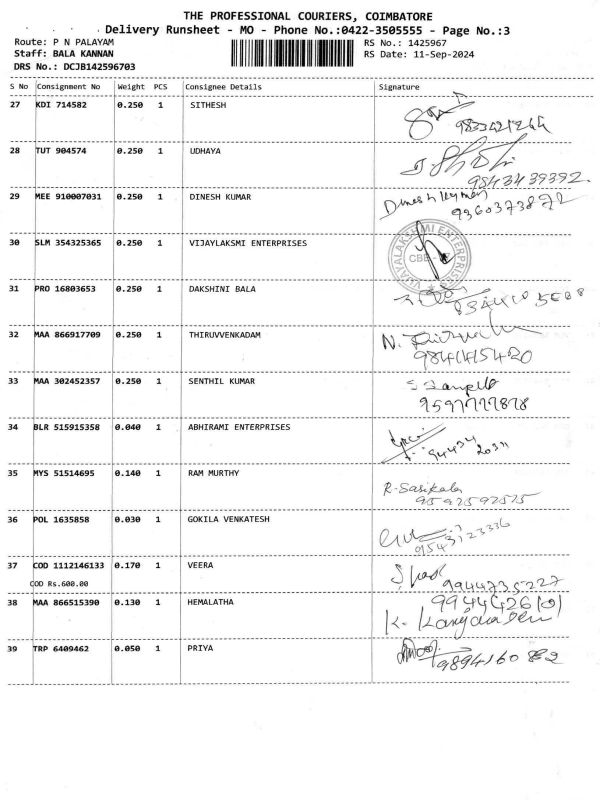 THE PROFESSIONAL COURIERS, COIMBATORE
Delivery Runsheet - MO - Phone No.:0422-3505555 - Page No.:3
Route: P N PALAYAM RS No.: 1425967
Staff: BALA KANNAN RS Date: 11-Sep-2024
DRS No.: DCJB142596703
S No Consignment No Weight PCS Consignee Details Signature
27 KDI 714582 0.250 1 SITHESH
28 TUT 904574 0.250 1 UDHAYA
9843439392.
29 MEE 910007031 0.250 1 DINESH KUMAR Dinesh Kumar
9360373872
30 SLM 354325365 0.250 1 VIJAYLAKSMI ENTERPRISES
VIJAYALAKSHMI ENTERPRISES
31 PRO 16803653 0.250 1 DAKSHINI BALA
32 MAA 866917709 0.250 1 THIRUVVENKADAM N.
9841415420
33 MAA 302452357 0.250 1 SENTHIL KUMAR
9597777878
34 BLR 515915358 0.040 1 ABHIRAMI ENTERPRISES
94434 20311
35 MYS 51514695 0.140 1 RAM MURTHY R. Sasikala
9597592575
36 POL 1635858 0.030 1 GOKILA VENKATESH
9543123336
37 COD 1112146133 0.170 1 VEERA
COD Rs.600.00 9944735227
38 MAA 866515390 0.130 1 HEMALATHA
K.
39 TRP 6409462 0.050 1 PRIYA
9894160882